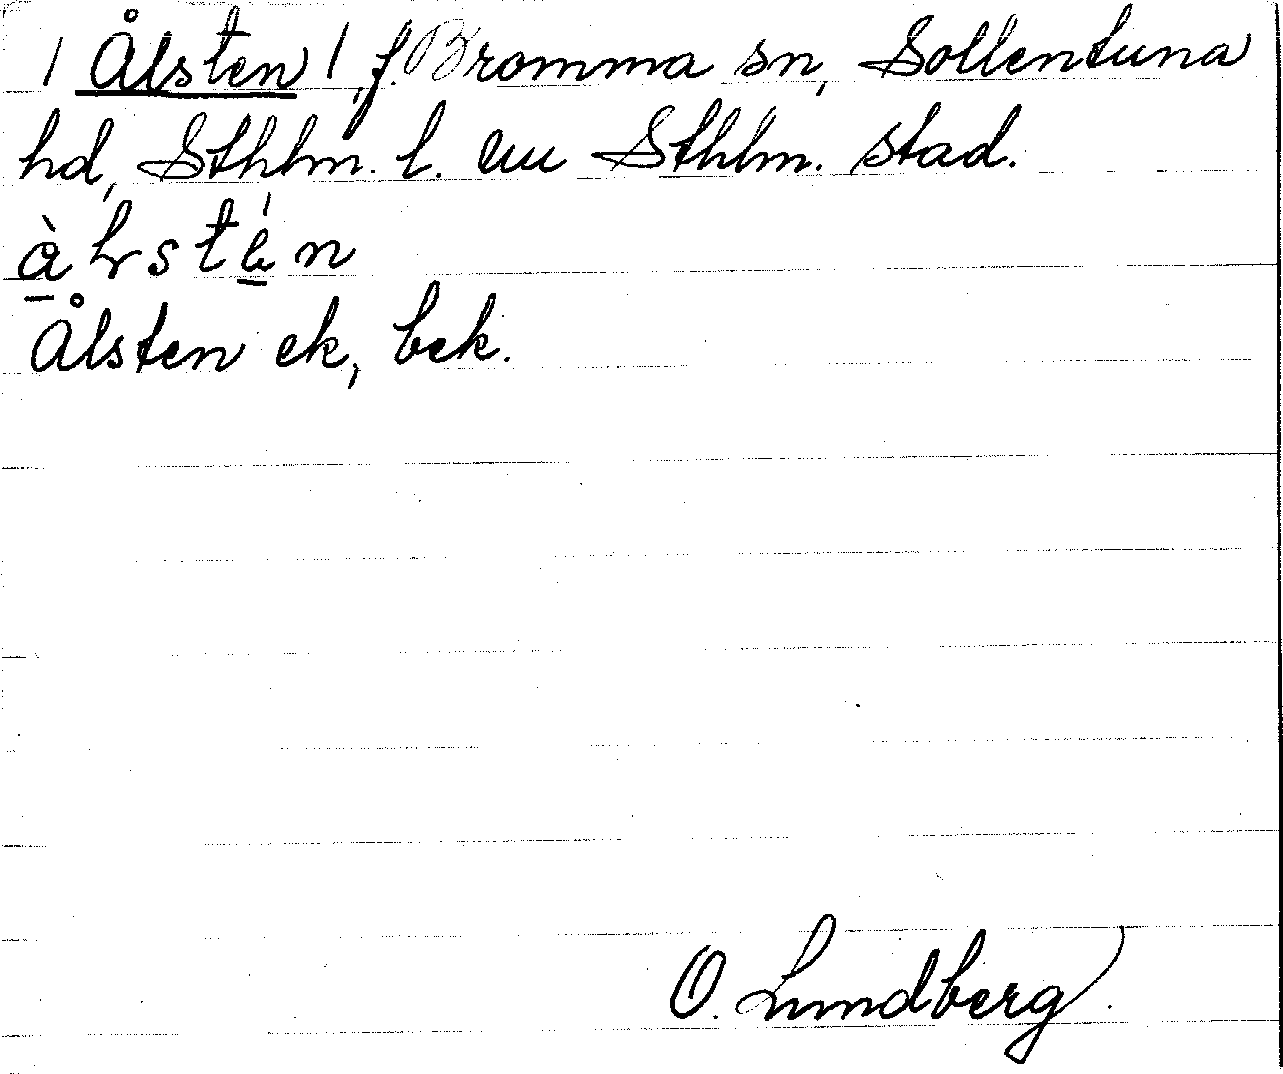 / Ålsten /, f. Bromma sn, Sollentuna
hd, Sthlm. l. nu Sthlm. stad.
Ålsten ek, bek.
O. Lundberg.